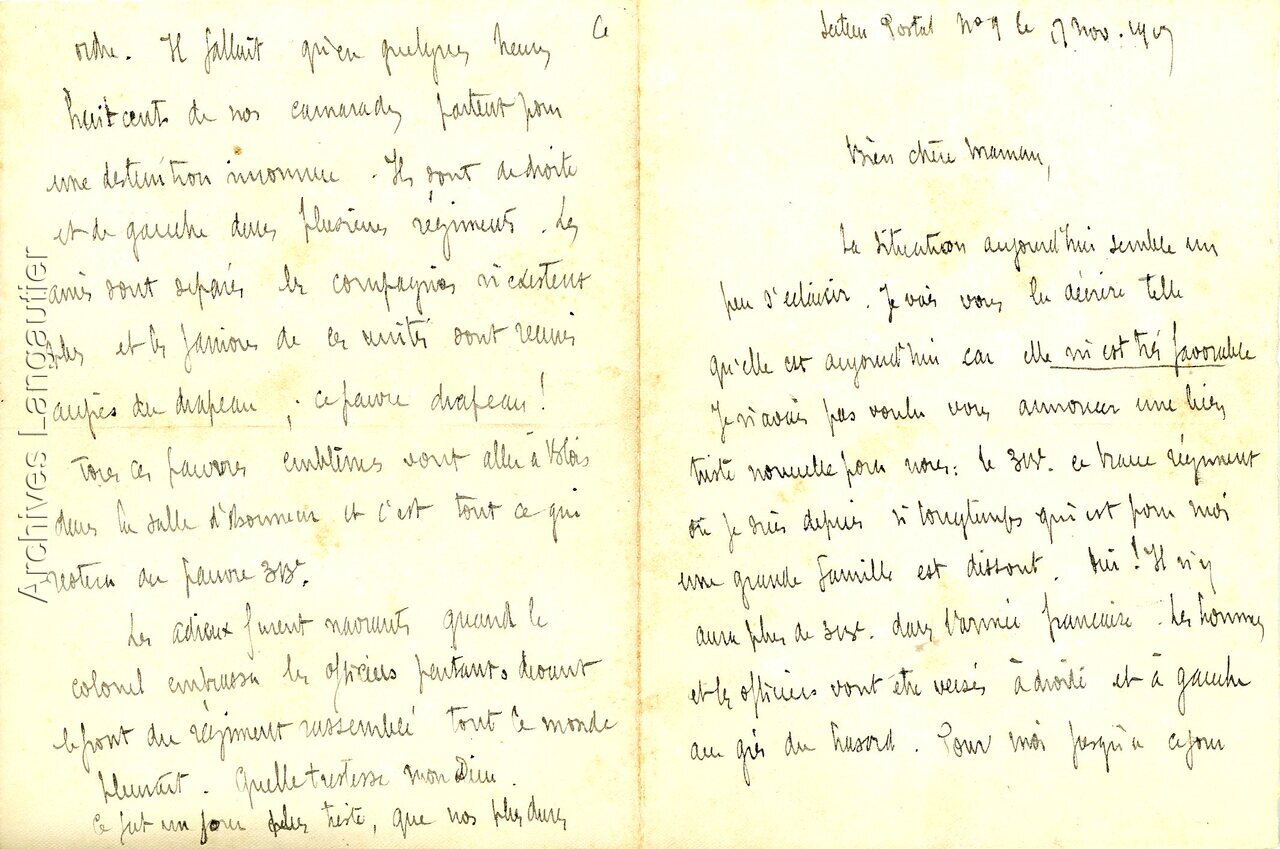 Secteur Postal No 9 le 17 Nov. 1915
Bien chère Maman,
La situation aujourd'hui semble un
peu s'éclaicir. Je vais vous la décrire telle
qu'elle est aujourd'hui car elle m'est très favorable
Je n'avais pas voulu vous annoncer une bien
triste nouvelle pour nous : le ce brave régiment
où je suis depuis si longtemps qui est pour moi
une grande famille est dissout. Oui ! Il n'y
aura plus de dans l'armée française. Les hommes
et les officiers vont être versés à droite et à gauche
au grès du hasard. Pour moi jusqu'à ce jour
Ce
ordre. Il fallait qu'en quelques heures
huit cents de nos camarades partent pour
une destination inconnue. Ils sont de droite
et de gauche dans plusieurs régiments. Les
amis sont séparés les compagnies n'existent
plus et les fanions de ces unités sont réunis
auprès du drapeau ; ce pauvre drapeau !
Tous ces pauvres emblèmes vont aller à Blois
dans la salle d'Honneur et c'est tout ce qui
restera du pauvre
Les adieux furent navrants quand le
colonel embrassa les officiers partants devant
le front du régiment rassemblé tout le monde
pleurait. Quelle tristesse mon Dieu.
Ce fut un jour plus triste, que nos plus durs
Archives Langautier